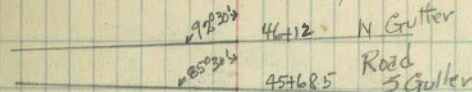 92°30' 46+12 N Gutter
Road
85°30' 45+68.5 S Gutter